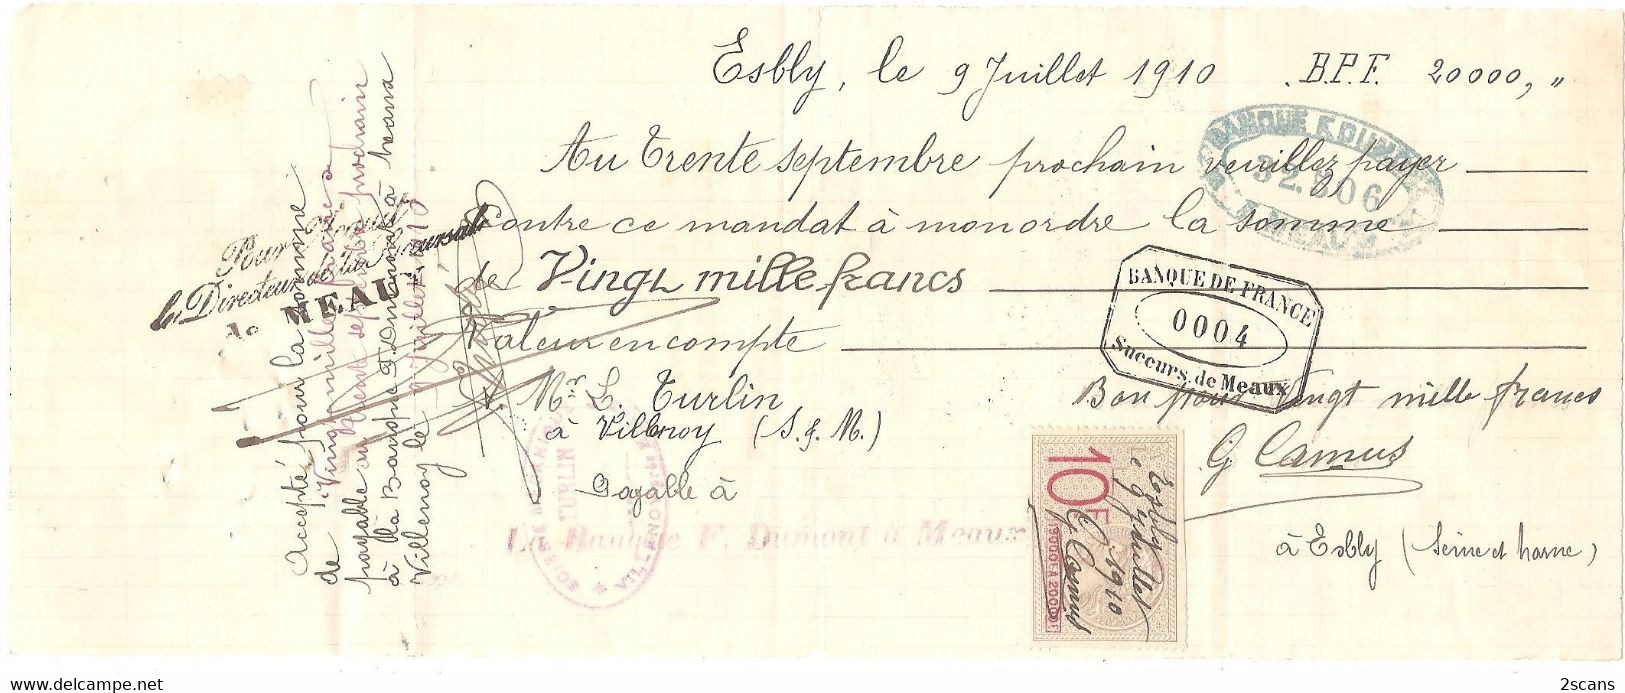 Esbly, le 9 Juillet 1910 . B.P.F. 20000, "
Au Trente septembre prochain veuillez payer
contre ce mandat à mon ordre la somme
de Vingt mille francs
Valeur en compte
Mr L. Turlin
à Villenoy (S. & M.)
Payable à
La Banque F. Dumont à Meaux
Bon pour Vingt mille francs
G Camus
à Esbly (Seine et Marne)
BANQUE F. DUMONT
32.806
BANQUE DE FRANCE
0004
Succurs. de Meaux
10F
19000F A 20000F
Esbly
le 9 Juillet
1910
G Camus
Pour Acquit
Le Directeur de la Succursale
de MEAUX
Accepté pour la somme
de Vingt mille francs
payable au trente septembre prochain
à la Banque F. Dumont à Meaux
Villenoy le 9 Juillet 1910
TURLIN
www.delcampe.net
2scans